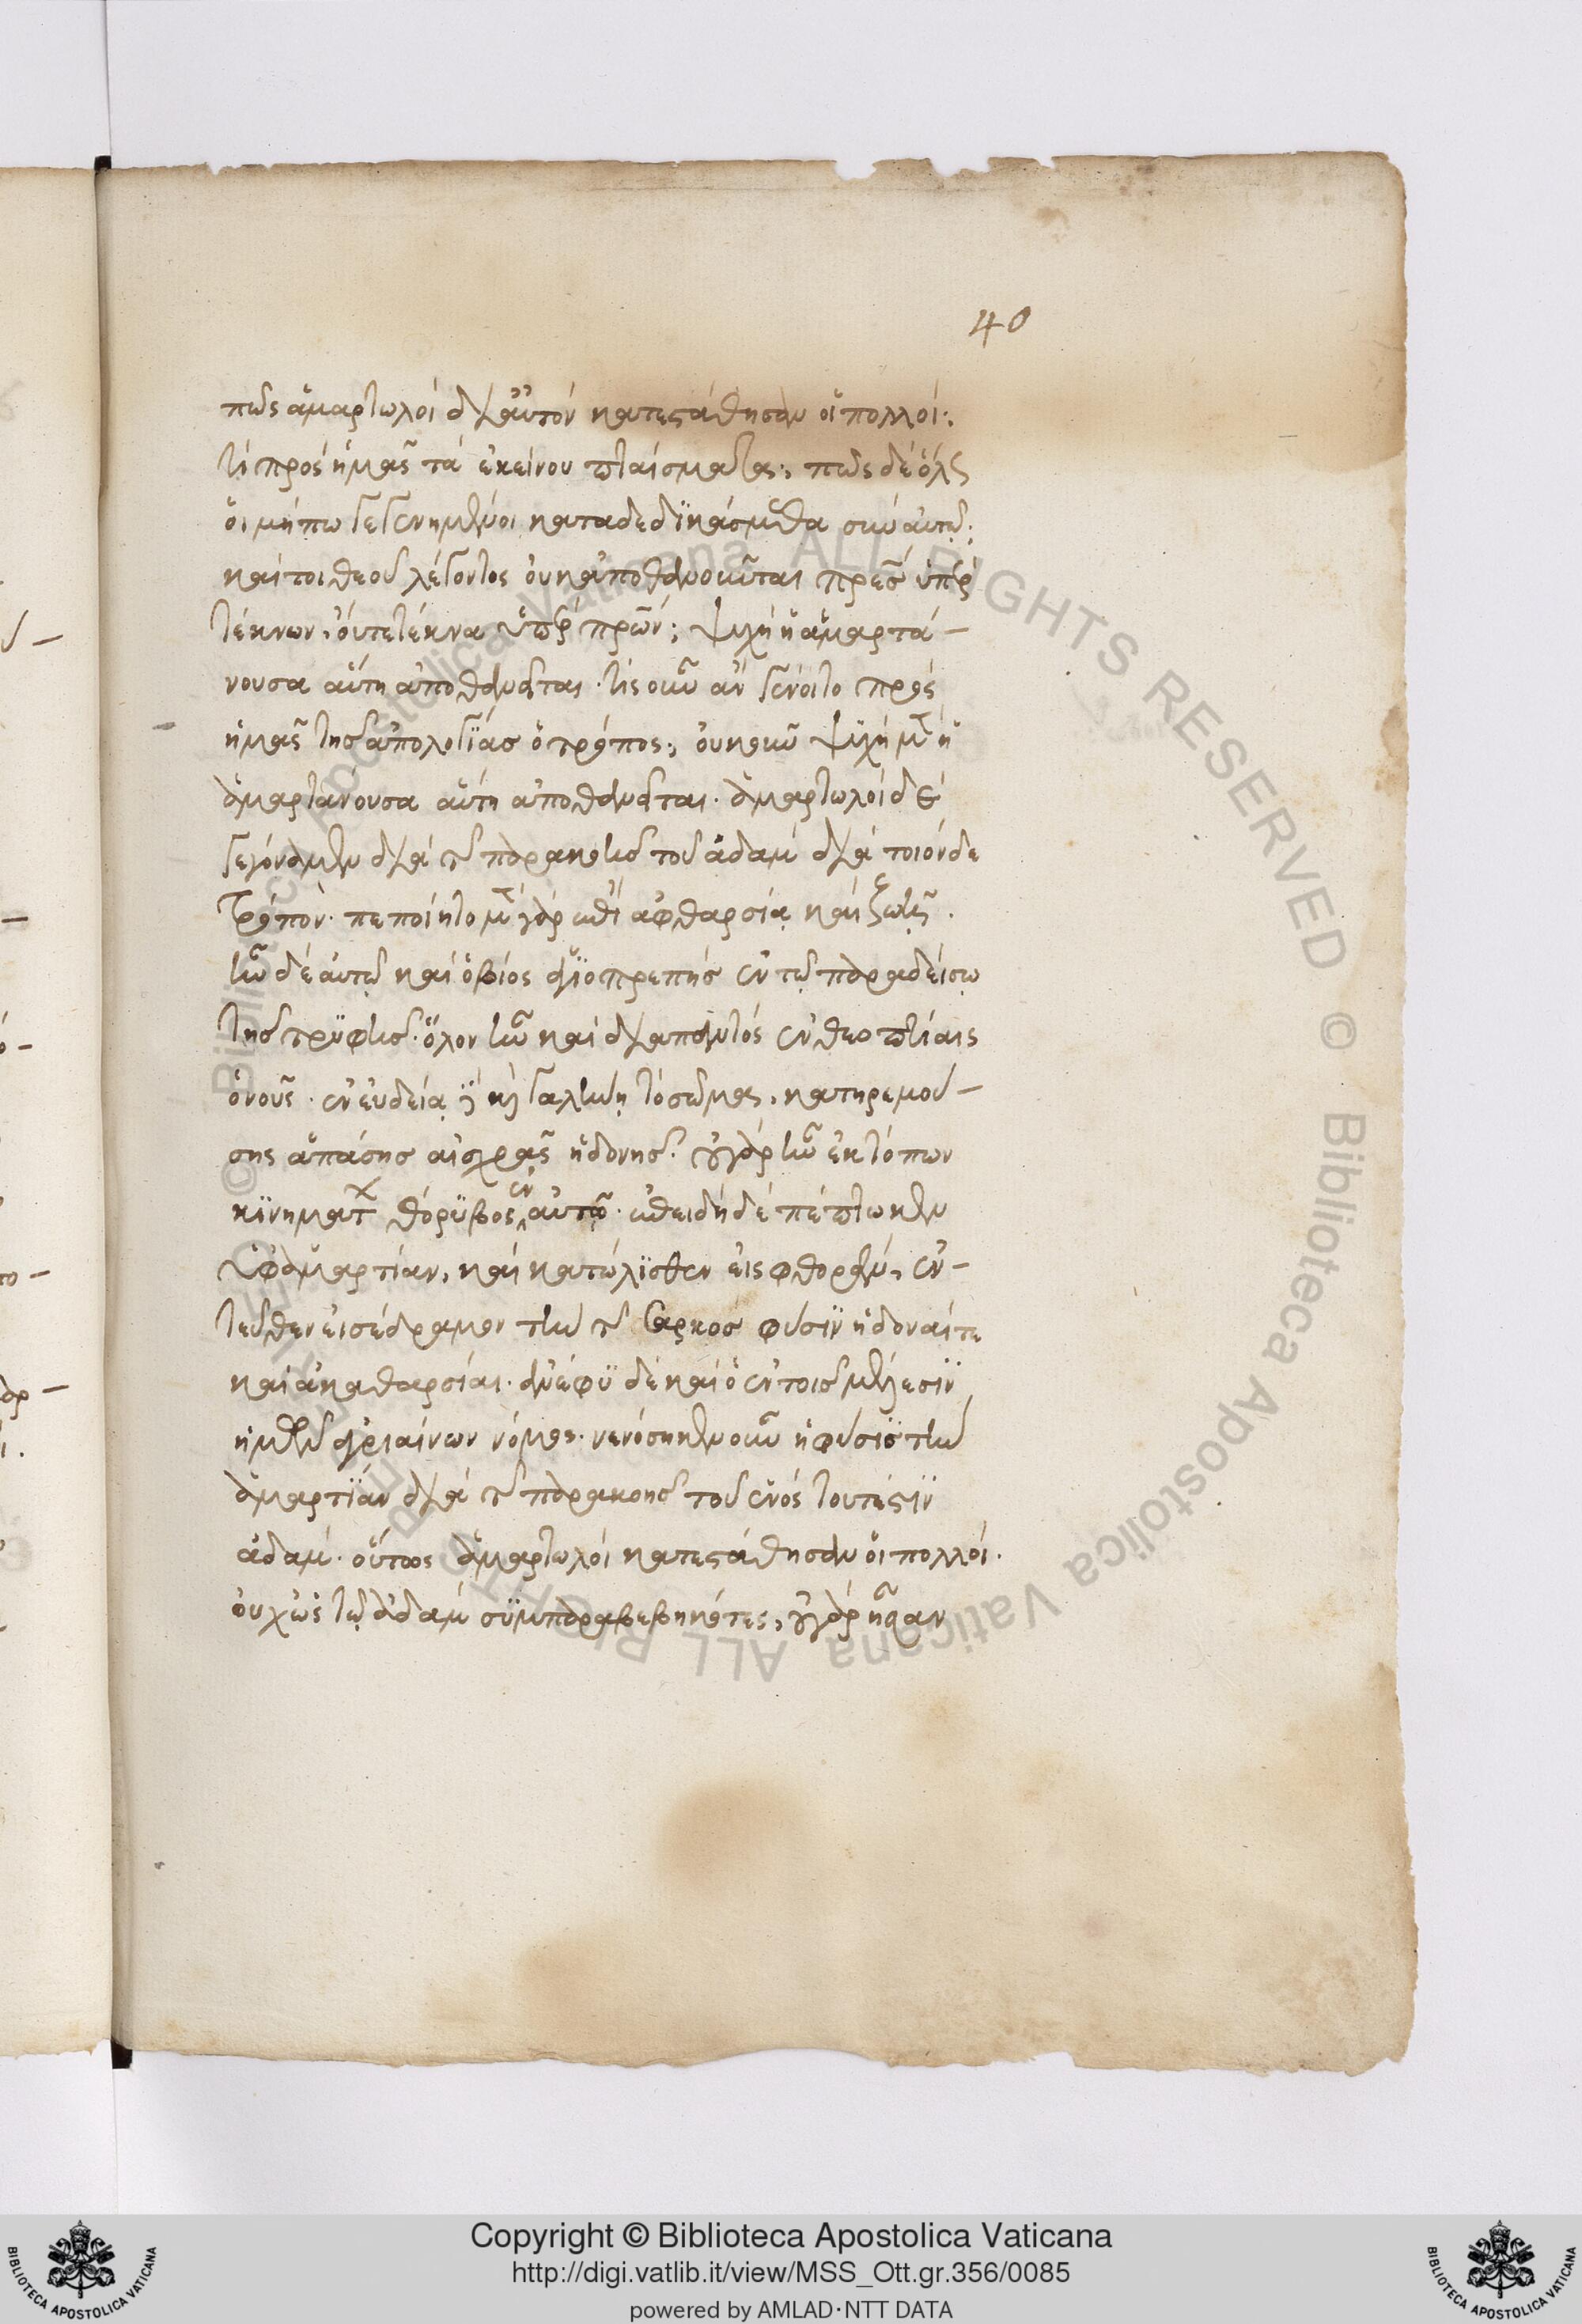 40
πῶς ἁμαρτωλοὶ δι' αὐτὸν κατεστάθησαν οἱ πολλοί;
τί πρὸς ἡμᾶς τὰ ἐκείνου πταίσματα; πῶς δὲ ὅλως
οἱ μήπω γεγεννημένοι καταδεδϊκάσμεθα σὺν αὐτῷ;
καίτοι θεοῦ λέγοντος οὐκ ἀποθανοῦνται πρες ὑπὲρ
τέκνων, οὔτε τέκνα ὑπὲρ πρων; ψυχὴ ἡ ἁμαρτά-
νουσα αὕτη ἀποθανεῖται. τίς οὖν ἂν γένοιτο πρὸς
ἡμᾶς τῆς ἀπολογΐας ὁ τρόπος; οὐκοῦν ψυχὴ μὲν ἡ
ἁμαρτάνουσα αὕτη ἀποθανεῖται. ἁμαρτωλοὶ δὲ
γεγόναμεν διὰ τῆς παρακοῆς τοῦ ἀδὰμ διὰ τοιόνδε
τρόπον. πεποίητο μὲν γὰρ ἐπὶ ἀφθαρσίᾳ καὶ ζωῇ.
ἦν δὲ αὐτῷ καὶ ὁ βίος ἁγϊοπρεπὴς ἐν τῷ παραδείσῳ
τῆς τρϋφῆς. ὅλον ἦν καὶ διαπαντὸς ἐν θεοπτίαις
ὁ νοῦς. ἐν εὐδείᾳ καὶ γαλήνῃ τὸ σῶμα, κατηρεμού-
σης ἁπάσης αἰσχρᾶς ἡδονῆς. οὐ γὰρ ἦν ἐκτόπων
κϊνημάτων θόρϋβος ἐν αὐτῷ. ἐπειδὴ δὲ πέπτωκεν
ὑφ' ἁμαρτίαν, καὶ κατώλϊσθεν εἰς φθορὰν, ἐν-
τεῦθεν εἰσέδραμον τὴν τῆς σαρκὸς φύσϊν ἡδοναί τε
καὶ ἀκαθαρσίαι. ἀνέφϋ δὲ καὶ ὁ ἐν τοῖς μέλεσϊν
ἡμῶν ἀγριαίνων νόμος. νενόσηκεν οὖν ἡ φύσϊς τὴν
ἁμαρτϊαν διὰ τῆς παρακοῆς τοῦ ἑνὸς τουτέστϊν
ἀδάμ. οὕτως ἁμαρτωλοὶ κατεστάθησαν οἱ πολλοί.
οὐχ ὡς τῷ ἀδὰμ σϋμπαραβεβηκότες, οὐ γὰρ ἦσαν
© Biblioteca Apostolica Vaticana ALL RIGHTS RESERVED © Biblioteca Apostolica Vaticana ALL RIGHTS RESERVED
Copyright © Biblioteca Apostolica Vaticana
http://digi.vatlib.it/view/MSS_Ott.gr.356/0085
powered by AMLAD·NTT DATA
BIBLIOTECA APOSTOLICA VATICANA
BIBLIOTECA APOSTOLICA VATICANA